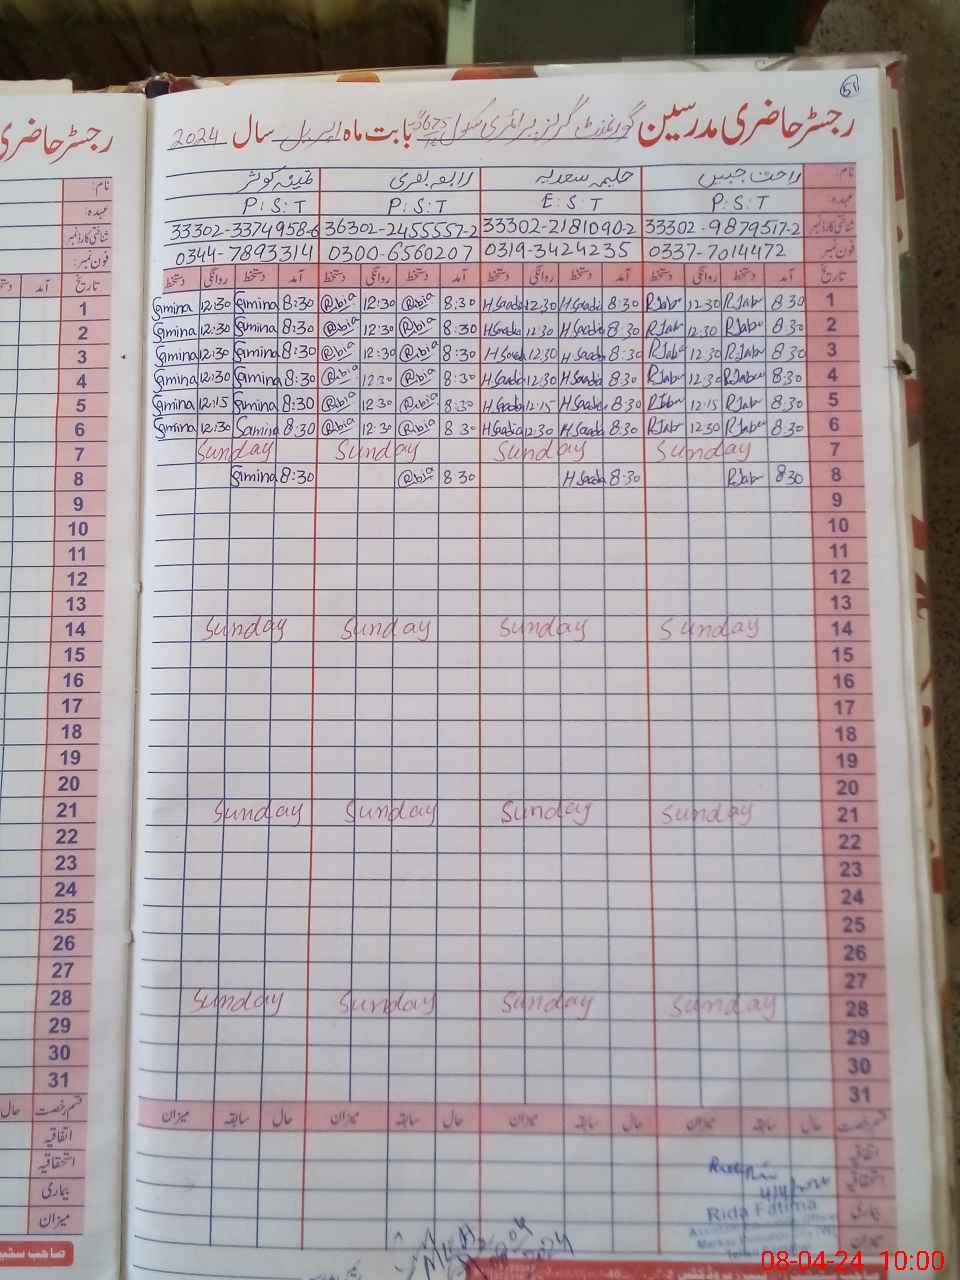 51
رجسٹر حاضری مدرسین گورنمنٹ گرلز پرائمری سکول 367/5 بابت ماہ اپریل سال 2024
نام: راحت جبیں حلیمہ سعدیہ رابعہ بصری ثمینہ کوثر
عہدہ: P:S:T E:S:T P:S:T P:S:T
شناختی کارڈ نمبر 33302-9879517-2 33302-2181090-2 36302-2455557-2 33302-3374958-6
فون نمبر: 0337-7014472 0319-3424235 0300-6560207 0344-7893314
تاریخ آمد دستخط روانگی دستخط آمد دستخط روانگی دستخط آمد دستخط روانگی دستخط آمد دستخط روانگی دستخط
1 8:30 R.Jabe 12:30 R.Jabe 8:30 H Saadia 12:30 H Saadia 8:30 Rabia 12:30 Rabia 8:30 Samina 12:30 Samina
2 8:30 R.Jabe 12:30 R.Jabe 8:30 H Saadia 12:30 H Saadia 8:30 Rabia 12:30 Rabia 8:30 Samina 12:30 Samina
3 8:30 R.Jabe 12:30 R.Jabe 8:30 H Saadia 12:30 H Saadia 8:30 Rabia 12:30 Rabia 8:30 Samina 12:30 Samina
4 8:30 R.Jabe 12:30 R.Jabe 8:30 H Saadia 12:30 H Saadia 8:30 Rabia 12:30 Rabia 8:30 Samina 12:30 Samina
5 8:30 R.Jabe 12:15 R.Jabe 8:30 H Saadia 12:15 H Saadia 8:30 Rabia 12:30 Rabia 8:30 Samina 12:15 Samina
6 8:30 R.Jabe 12:30 R.Jabe 8:30 H Saadia 12:30 H Saadia 8:30 Rabia 12:30 Rabia 8:30 Samina 12:30 Samina
7 Sunday Sunday Sunday Sunday
8 8:30 R.Jabe 8:30 H Saadia 8:30 Rabia 8:30 Samina
9
10
11
12
13
14 Sunday Sunday Sunday Sunday
15
16
17
18
19
20
21 Sunday Sunday Sunday Sunday
22
23
24
25
26
27
28 Sunday Sunday Sunday Sunday
29
30
31
قسم رخصت حال سابقہ میزان حال سابقہ میزان حال سابقہ میزان حال سابقہ میزان
اتفاقیہ
استحقاقیہ
بیماری
میزان
Rida Fatima
رجسٹر حاضری
نام:
عہدہ:
شناختی کارڈ نمبر
فون نمبر:
تاریخ آمد دستخط
1
2
3
4
5
6
7
8
9
10
11
12
13
14
15
16
17
18
19
20
21
22
23
24
25
26
27
28
29
30
31
قسم رخصت حال
اتفاقیہ
استحقاقیہ
بیماری
میزان
08-04-24 10:00